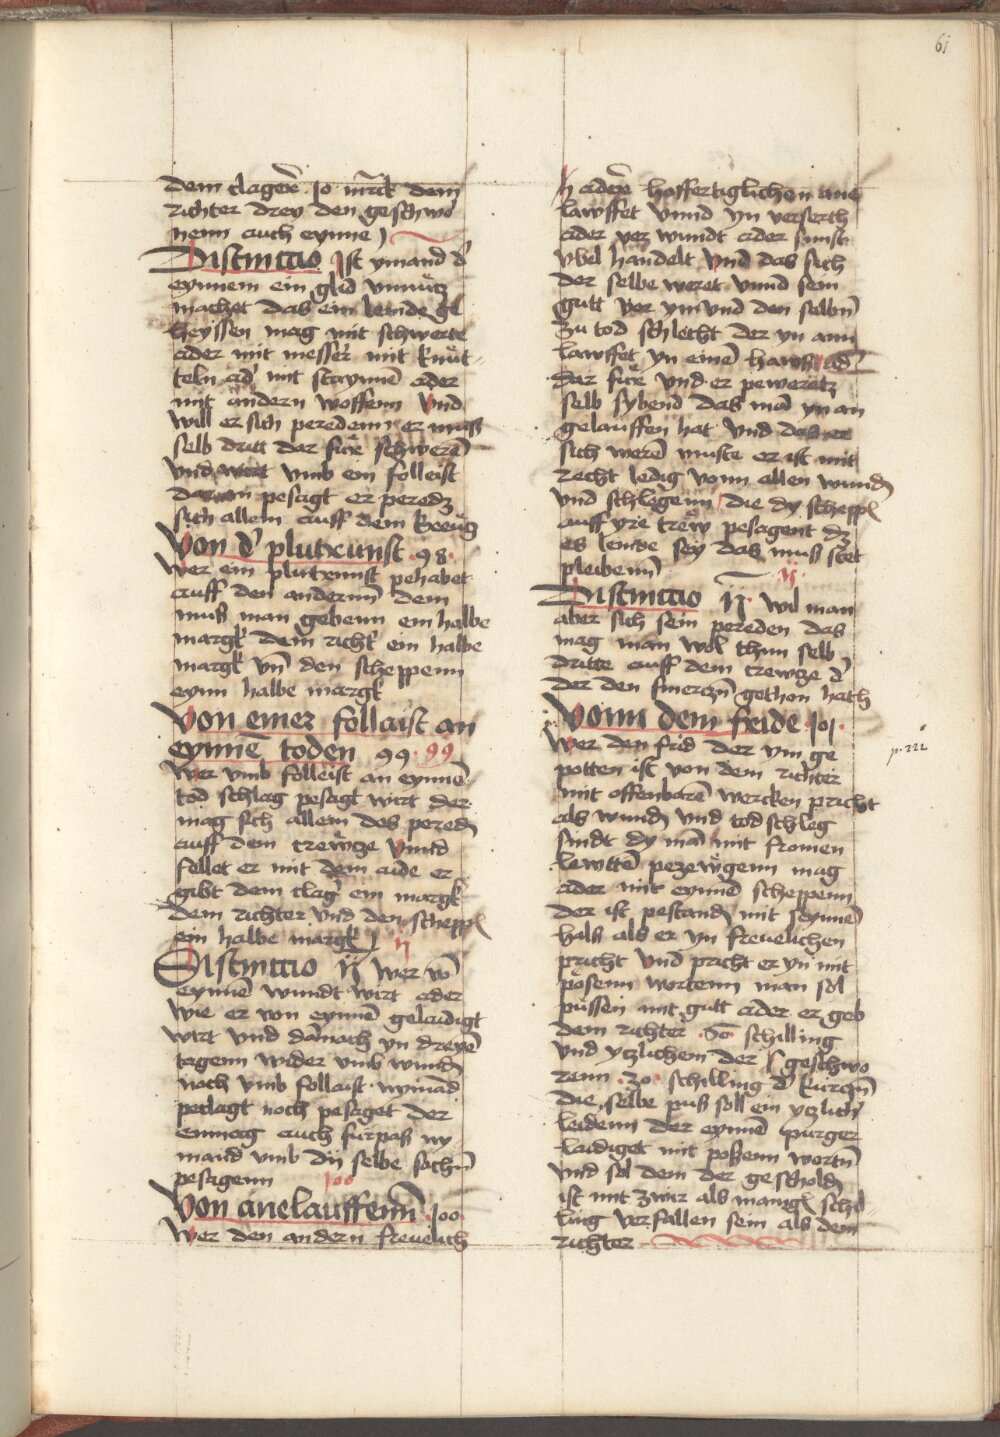 61
dem clagere jo marck dem
richter drey den geschwo
renn auch eynne
Distinctio Ist ymand d'
eynnem ein glid vnnutz
machet das ein lemde
heyssen mag mit schwerte
ader mit messer mit knut-
teln ad' mit staynnē ader
mit andern woffenn Vnd
will er sich peredenn er muß
selb dritt dar fure schwerē
vnd wirt vmb ein folleist
daran pesagt er peredz
sich allein auff dem krewtz
Von d' plutrunst .98.
Wer ein plutrunst pehabet
auff den anderm dem
muß man gebenn ein halbe
margk dem richt' ein halbe
margk vn̄ den scheppenn
eynn halbe margk
Von einer follaist an
eynnē toden 99 .99
Wer vmb folleist an eynnē
tod schlag pesagt wirt der
mag sich allein des pereden
auff dem crewtze vnnd
fellet er mit dem aide er
gibt dem clag' ein margk
dem richter vnd den schepp
ein halbe margk
ij
Distinctio ij Wer vō
eynnē wundt wirt ader
wie er von eynnē gelaidigt
wirt vnd dārnach yn dreyē
tagenn wider vmb wunden
noch vmb follaist nymād
peclagt noch pesaget der
enmag auch furpaß ny-
mand vmb dy selbe sachn̄
pesagenn
100
Von anelauffenn .100.
Wer den andern freuelich
h adere hoffertiglichen ane
lawffet vnnd yn verserth
ader verwundt ader sunst
vbel handelt Vnd das sich
der selbe weret vnnd sein
gutt vor ym vnd den selbn̄
zu tod schlecht der yn ann
lawffet yn einē hawß ad'
dar fure vnd er peweretz
selb sybend das mā yn an
gelauffen hat vnd das er
sich werē muste er ist mit
recht ledig vonn allen wunden
vnd schlegenn die dy schepp
auff yre trew pesagent dz
es lemde sey das muß stet
pleibenn
ij
Distinctio ij. Wil man
aber sich sein pereden das
mag man wol thun selb
dritte auff dem crewtze d'
der den smerczn̄ gethon hath
Vonn dem fride .101.
Wer den frid der ym ge
potten ist von dem richter
mit offenbarē wercken pricht
als wunden vnd todschleg
sindt dy mā mit fromen
lewttē pezewgenn mag
ader mit eynnē scheppenn
der ist pestanden mit seynnē
halß als er yn freuelichen
pricht vnd pricht er yn mit
posenn wortenn man sol
pussen mit gutt ader er geb
dem richter .60. schilling
vnd ytzlichem der geschwo
renn .30. schilling d' kurczn̄
die selbe puß soll ein ytzlich'
leidenn der eynnē purger
laidiget mit posenn wortn̄
vnd sol dem der gescholden
ist mit zwir als manig schil
ling verfallen sein als dem
richter
p. 222